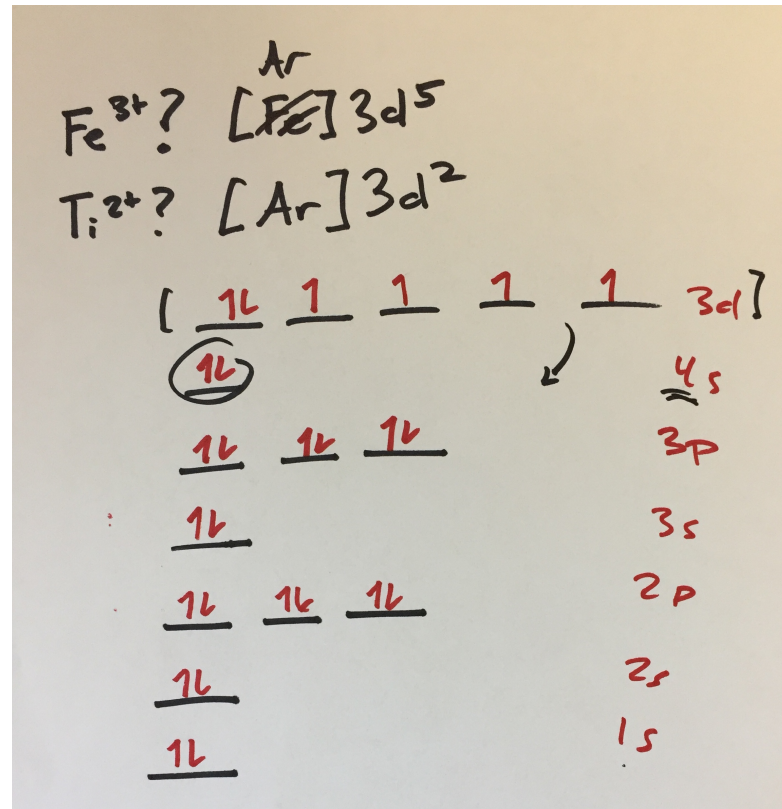 Ar
Fe³⁺? [Fe] 3d⁵
Ti²⁺? [Ar] 3d²
[ 1L 1 1 1 1 3d ]
1L 4s
1L 1L 1L 3p
1L 3s
1L 1L 1L 2p
1L 2s
1L 1s